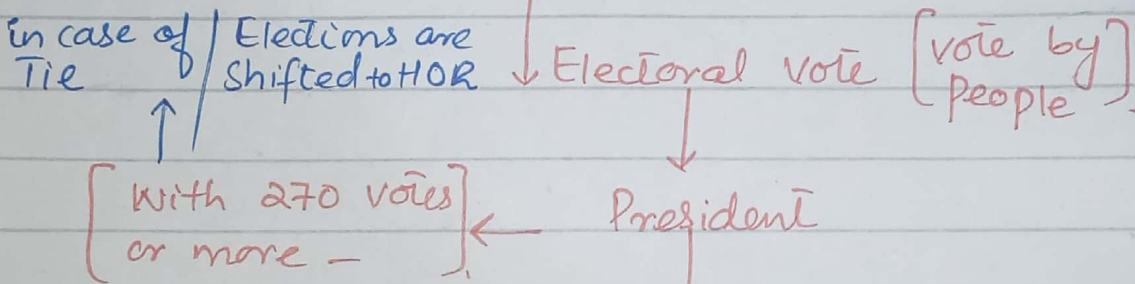 in case of / Elections are
Tie Shifted to HOR
Electoral vote [vote by
people]
[With 270 votes
or more -]
President